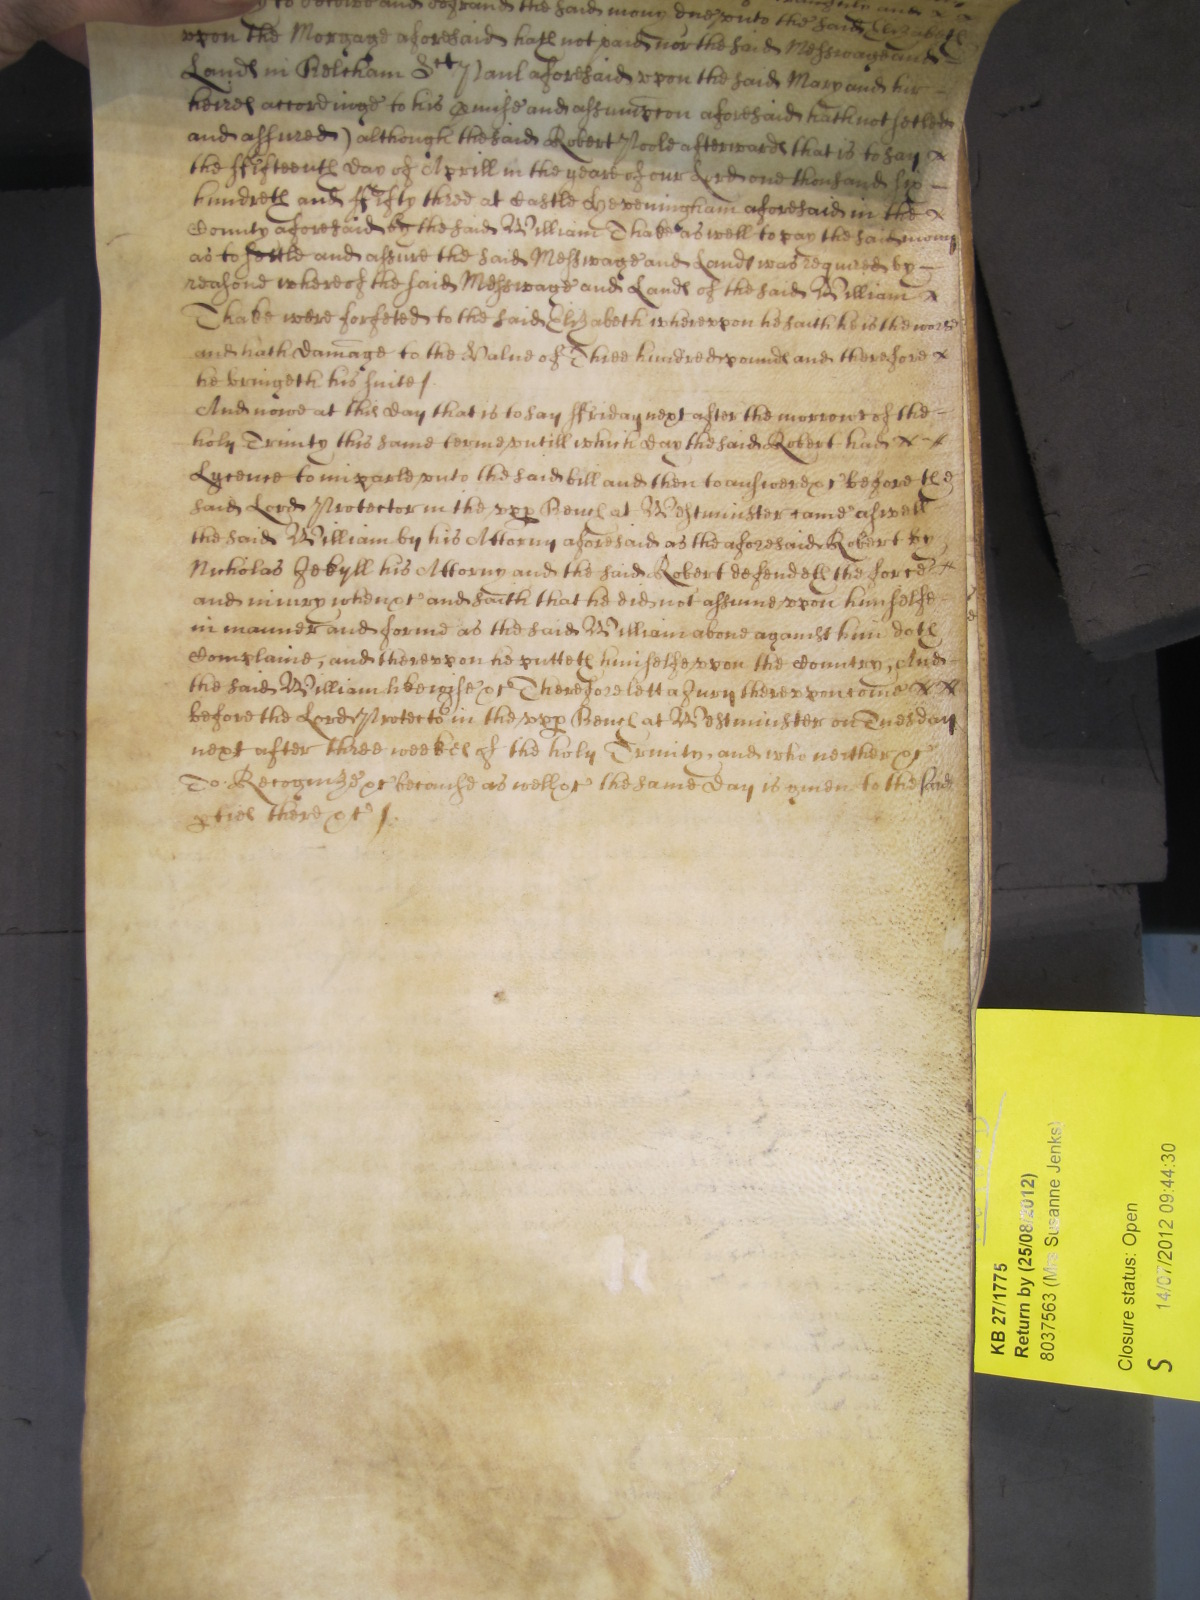 to receive and defrand the said mony due vnto the said Elizabeth
vpon the Morgage aforesaid hath not paid nor the said Messwage and
Lands in Belcham Sct Paul aforesaid vpon the said Mary and hir
heires accordinge to his pmise and assumpcon aforesaid hath not setled
and assured) although the said Robert Poole afterwards that is to say
the ffifteenth day of Aprill in the yeare of our Lord one thousand six
hundreth and ffifty three at Castle Heveningham aforesaid in the
County aforesaid by the said William Thake as well to pay the said mony
as to settle and assure the said Messwage and Lands was required by
reasone whereof the said Messwage and Lands of the said William
Thake were forfeted to the said Elizabeth wherevpon he saith he is the worse
and hath damage to the Value of Three hundred pounds and therefore
he bringeth his suite /.
And nowe at this day that is to say ffriday next after the morrowe of the
holy Trinity this same terme vntill which day the said Robert had
Lycence to imparle vnto the said bill and then to answere &c before the
said Lord Protector in the vpp Bench at Westminster came aswell
the said William by his Attorny aforesaid as the aforesaid Robert by
Nicholas Jekyll his Attorny and the said Robert defendeth the force
and iniury when &c and saith that he did not assume vpon himselfe
in manner and forme as the said William above against him doth
Complaine, and therevpon he putteth himselfe vpon the Country, And
the said William likewise &c Therefore lett a Jury therevpon come
before the Lord Protector in the vpp Bench at Westminster on Tuesday
next after three weekes of the holy Trinity, and who neither &c
To Recognize &c because as well &c the same day is given to the said
pties there &c /.
KB 27/1775
Return by (25/08/2012)
8037563 (Mrs Susanne Jenks)
Closure status: Open
S 14/07/2012 09:44:30